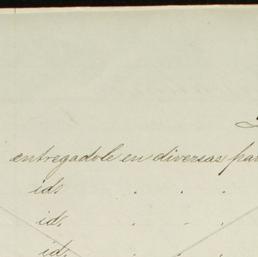 entregadole en diversas par
id. . . .
id. . . .
id. . . .